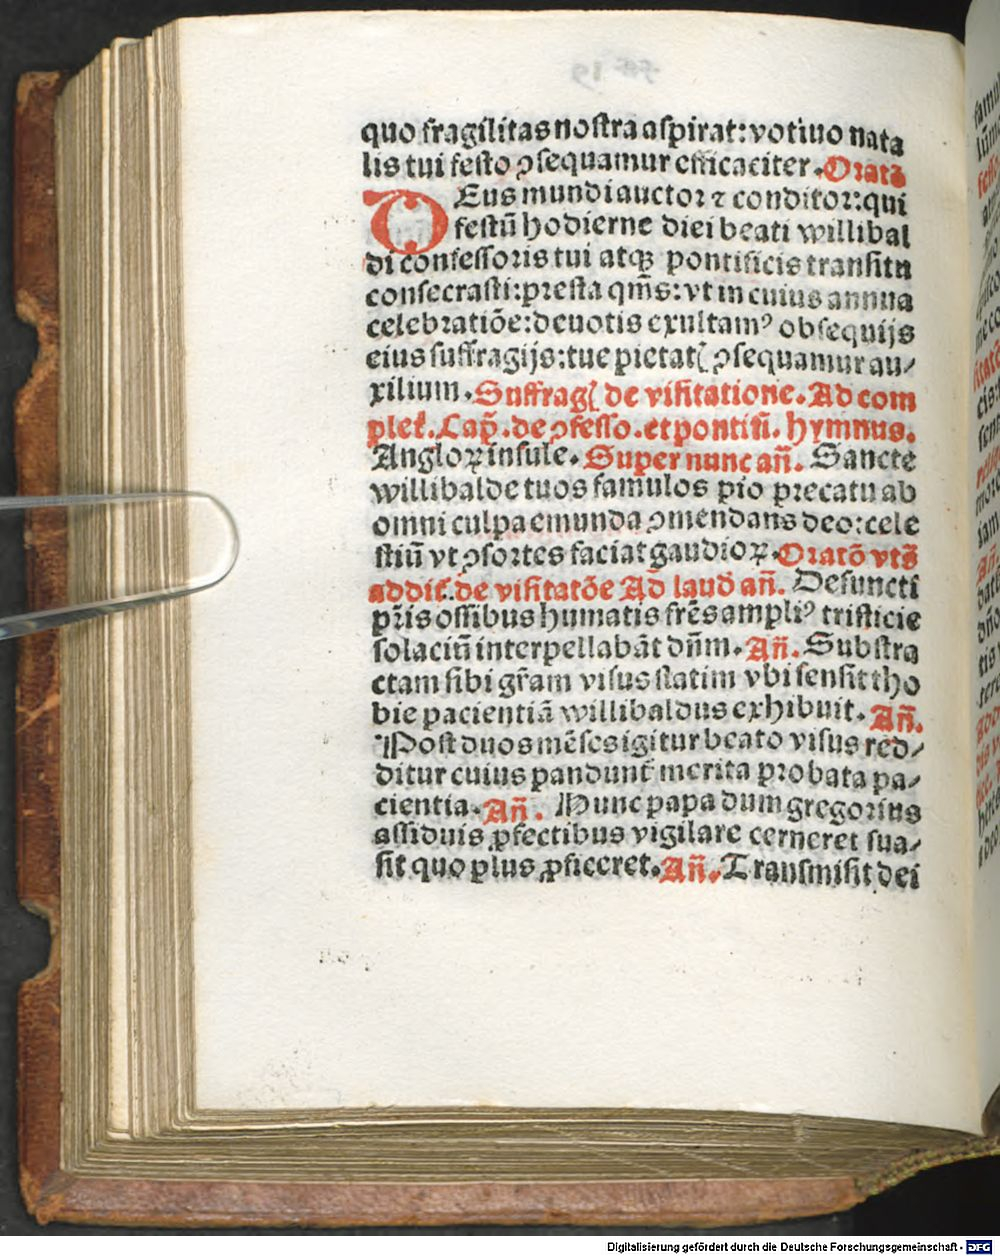 quo fragilitas nostra aspirat: votiuo nata
lis tui festo ꝯsequamur efficaciter. Oratō
DEus mundi auctor ⁊ conditor: qui
festū hodierne diei beati willibal
di confessoris tui atqꝫ pontificis transitu
consecrasti: presta qm̄s: vt in cuius annua
celebratiōe: deuotis exultamꝰ obsequijs
eius suffragijs: tue pietatꝭ ꝯsequamur au⸗
xilium. Suffragꝭ de visitatione. Ad com
plet. Cap̄. de ꝯfesso. et pontifi. hymnus.
Angloꝝ insule. Super nunc añ. Sancte
willibalde tuos famulos pio precatu ab
omni culpa emunda ꝯmendans deo: cele
stiū vt ꝯsortes faciat gaudioꝝ. Oratō vts̄
addit. de visitatōe Ad laud̄ añ. Defuncti
pr̄is ossibus humatis fr̄es ampliꝰ tristicie
solaciū interpellabāt dn̄m. Añ. Substra
ctam sibi gr̄am visus statim vbi sensit tho
bie pacientiā willibaldus exhibuit. Añ.
Post duos mēses igitur beato visus red⸗
ditur cuius pandunt merita probata pa⸗
cientia. Añ. Hunc papa dum gregorius
assiduis ꝓfectibus vigilare cerneret sua⸗
sit quo plus ꝓficeret. Añ. Transmisit dei
Digitalisierung gefördert durch die Deutsche Forschungsgemeinschaft - DFG